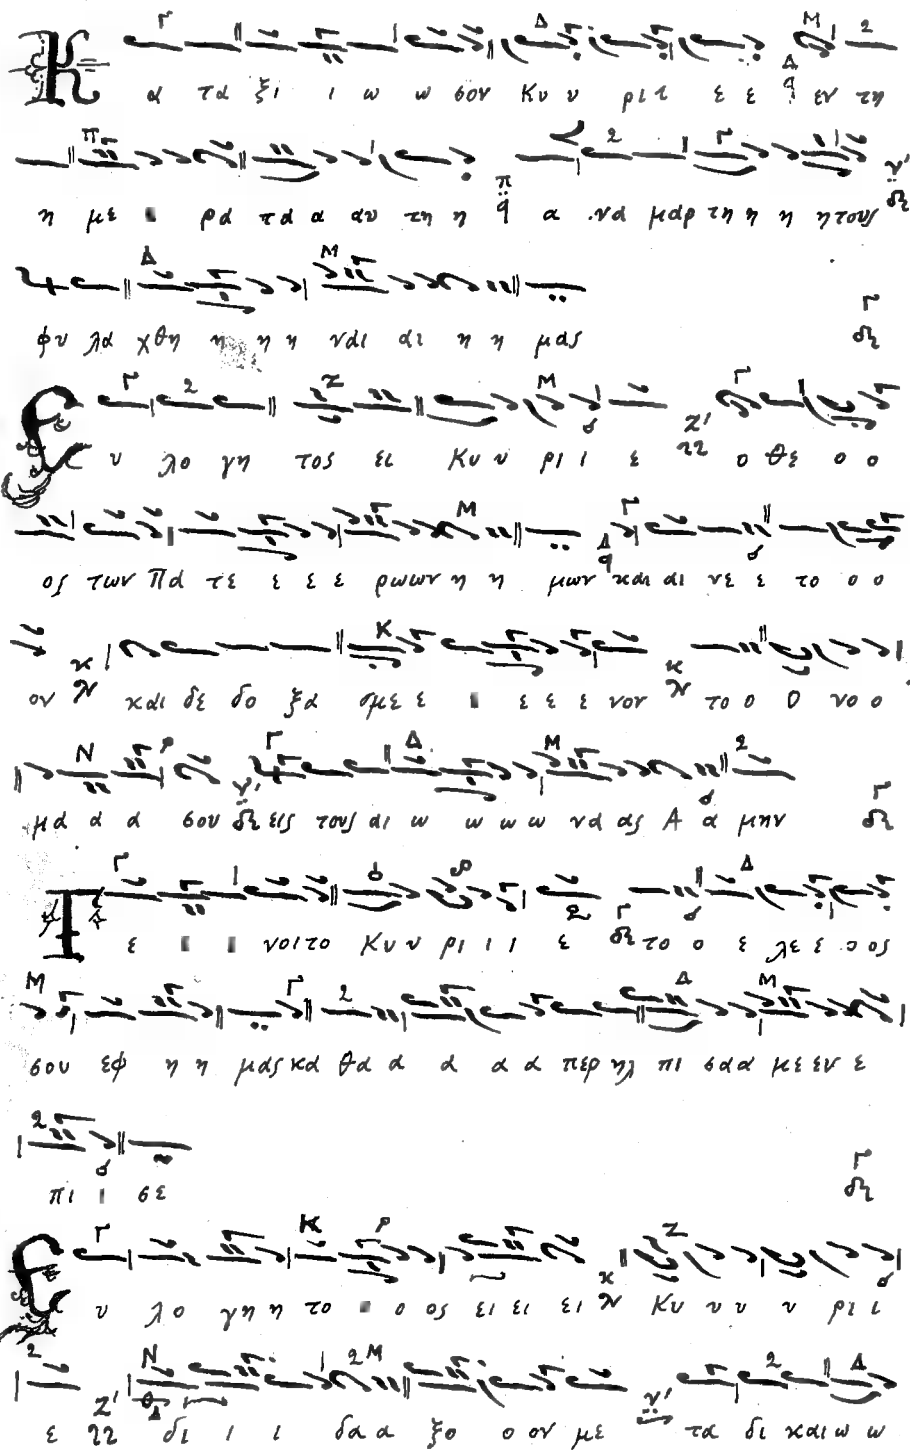 Κ α τα ξι ι ω ω σον Κυ υ ρι ι ε ε εν τη
η με ρα τα α α αυ τη η α να μαρ τη η η η τους
φυ λα χθη η η η ναι αι η η μας
Ε υ λο γη τος ει Κυ υ ρι ι ε ο θε ο ο
ος των Πα τε ε ε ε ρωων η η μων και αι νε ε το ο ο
ον και δε δο ξα σμε ε ε ε ε νον το ο Ο νο ο
μα α α α σου εις τους αι ω ω ω ω να ας Α α μην
Γ ε νοιτο Κυ υ ρι ι ι ε το ο ε λε ε ος
σου εφ η η μας κα θα α α α α περ ηλ πι σαα με εν ε
πι ι σε
Ε υ λο γη η το ο ος ει ει ει Κυ υ υ υ ρι ι
ε δι ι ι ι δα α ξο ο ον με τα δι και ω ω